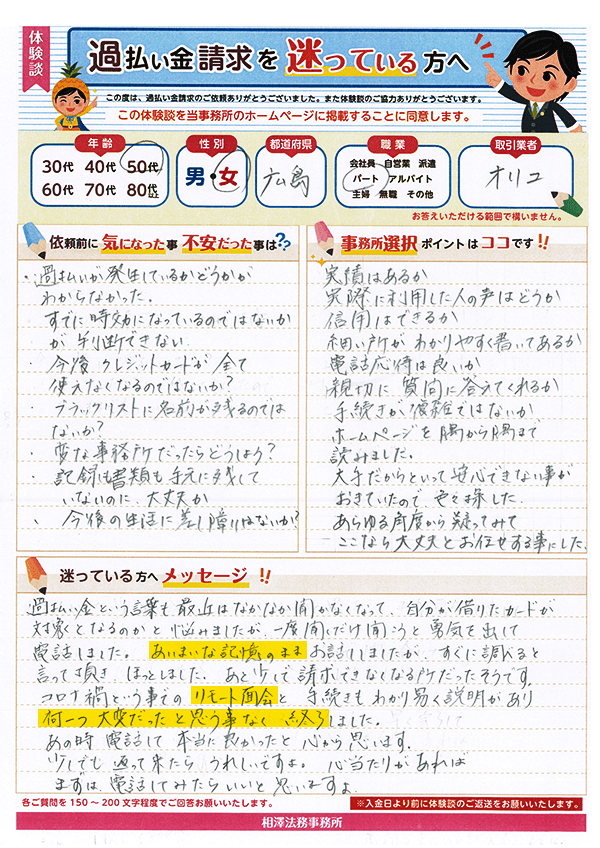 体験談
過払い金請求を迷っている方へ
この度は、過払い金請求のご依頼ありがとうございました。また体験談のご協力ありがとうございます。
この体験談を当事務所のホームページに掲載することに同意します。
年齢
30代 40代 50代
60代 70代 80代以上
性別
男・女
都道府県
広島
職業
会社員 自営業 派遣
パート アルバイト
主婦 無職 その他
取引業者
オリコ
お答えいただける範囲で構いません。
依頼前に気になった事 不安だった事は??
・過払いが発生しているかどうかが
わからなかった.
すでに時効になっているのではないか
が判断できない
・今後クレジットカードが全て
使えなくなるのではないか?
・ブラックリストに名前が残るのでは
ないか?
・変な事務所だったらどうしよう?
・記録も書類も手元に残して
いないのに、大丈夫か
・今後の生活に差し障りはないか?
事務所選択ポイントはココです!!
実績はあるか
実際に利用した人の声はどうか
信用はできるか
細い所がわかりやすく書いてあるか
電話応待は良いか
親切に質問に答えてくれるか
手続きが複雑ではないか
ホームページを隅から隅まで
読みました。
大手だからといって安心できない事が
おきていたので 色々探した.
あらゆる角度から疑ってみて
ここなら大丈夫とお任せする事にした
迷っている方へメッセージ!!
過払い金という言葉も最近はなかなか聞かなくなって、自分が借りたカードが
対象となるのかと悩みましたが、一度聞くだけ聞こうと勇気を出して
電話しました。あいまいな記憶のままお話ししましたが、すぐに調べると
言って頂き、ほっとしました。あと少しで請求できなくなる所だったそうです.
コロナ禍という事でのリモート面会と手続きもわかり易く説明があり
何一つ大変だったと思う事なく終了しました。
あの時電話して本当に良かったと心から思います.
少しでも返って来たらうれしいですよ。心当たりがあれば
まずは、電話してみたらいいと思いますよ.
各ご質問を150~200文字程度でご回答お願いいたします。
※入金日より前に体験談のご返送をお願いいたします。
相澤法務事務所